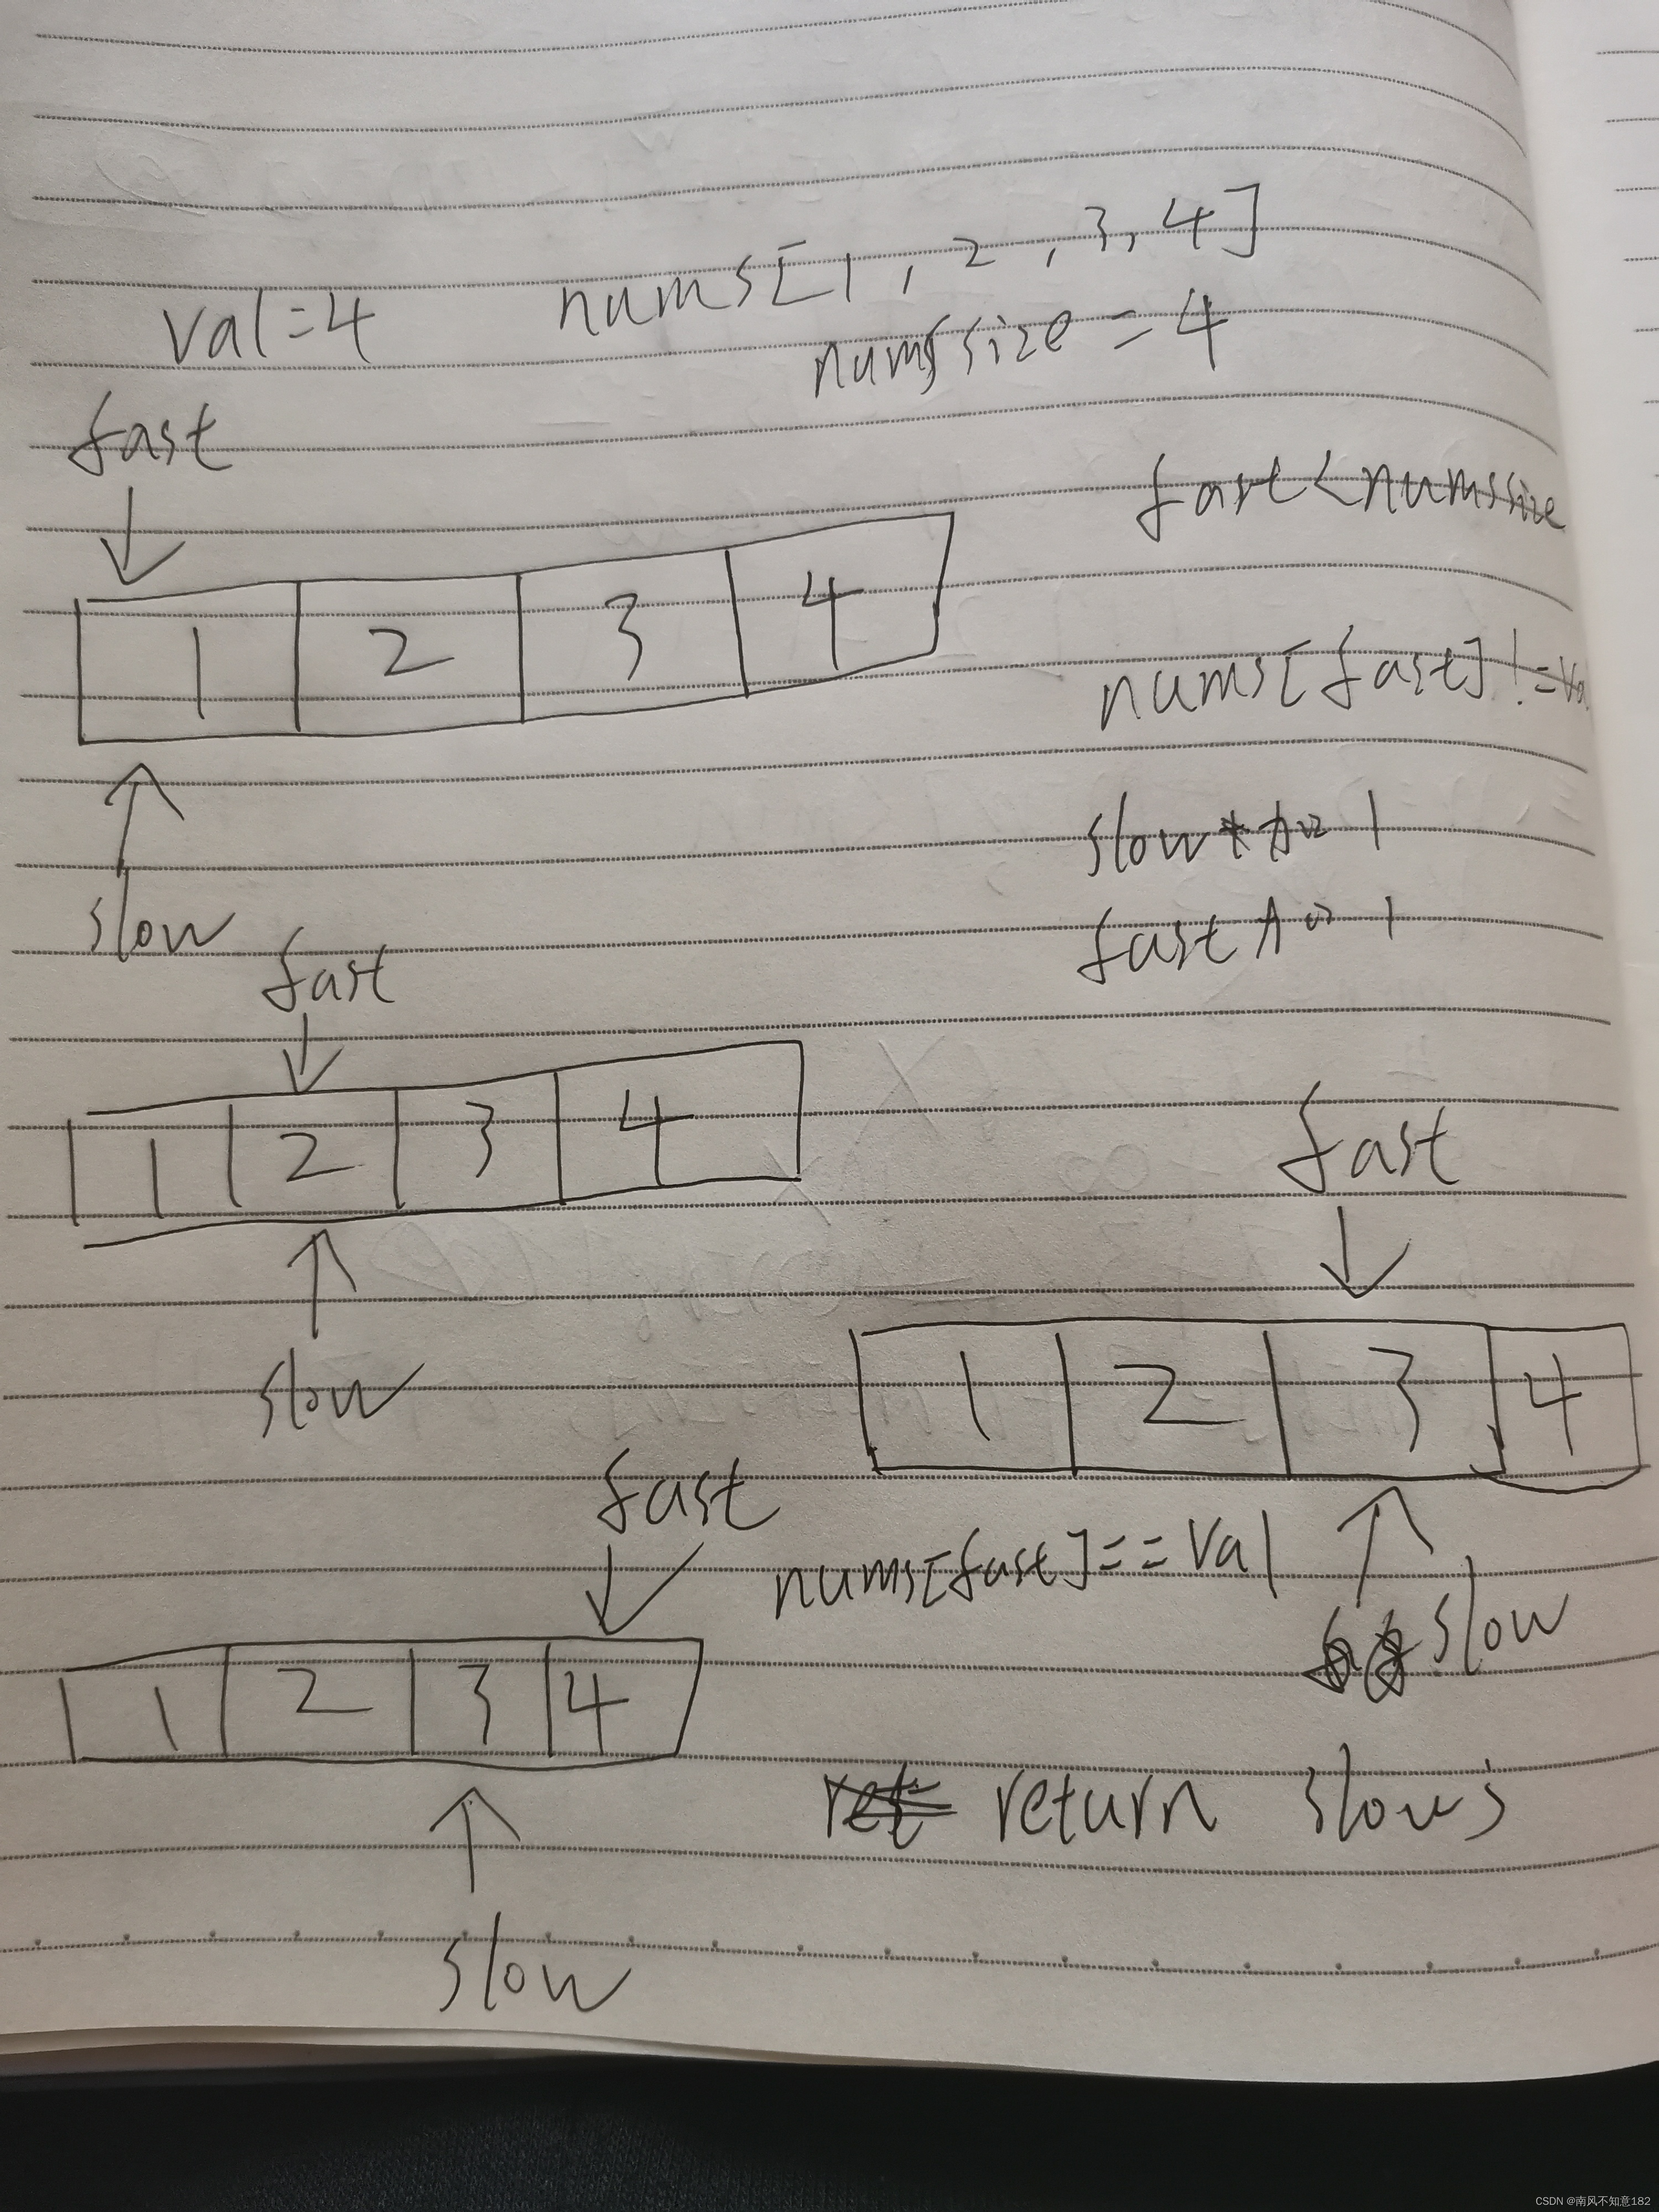 val=4 nums[1,2,3,4]
numssize=4
fast
fast<numssize
1 2 3 4
nums[fast]!=va
slow加1
slow
fast加1
fast
1 2 3 4
fast
slow
1 2 3 4
fast
nums[fast]==val
slow
1 2 3 4
return slow;
slow
CSDN @南风不知意182